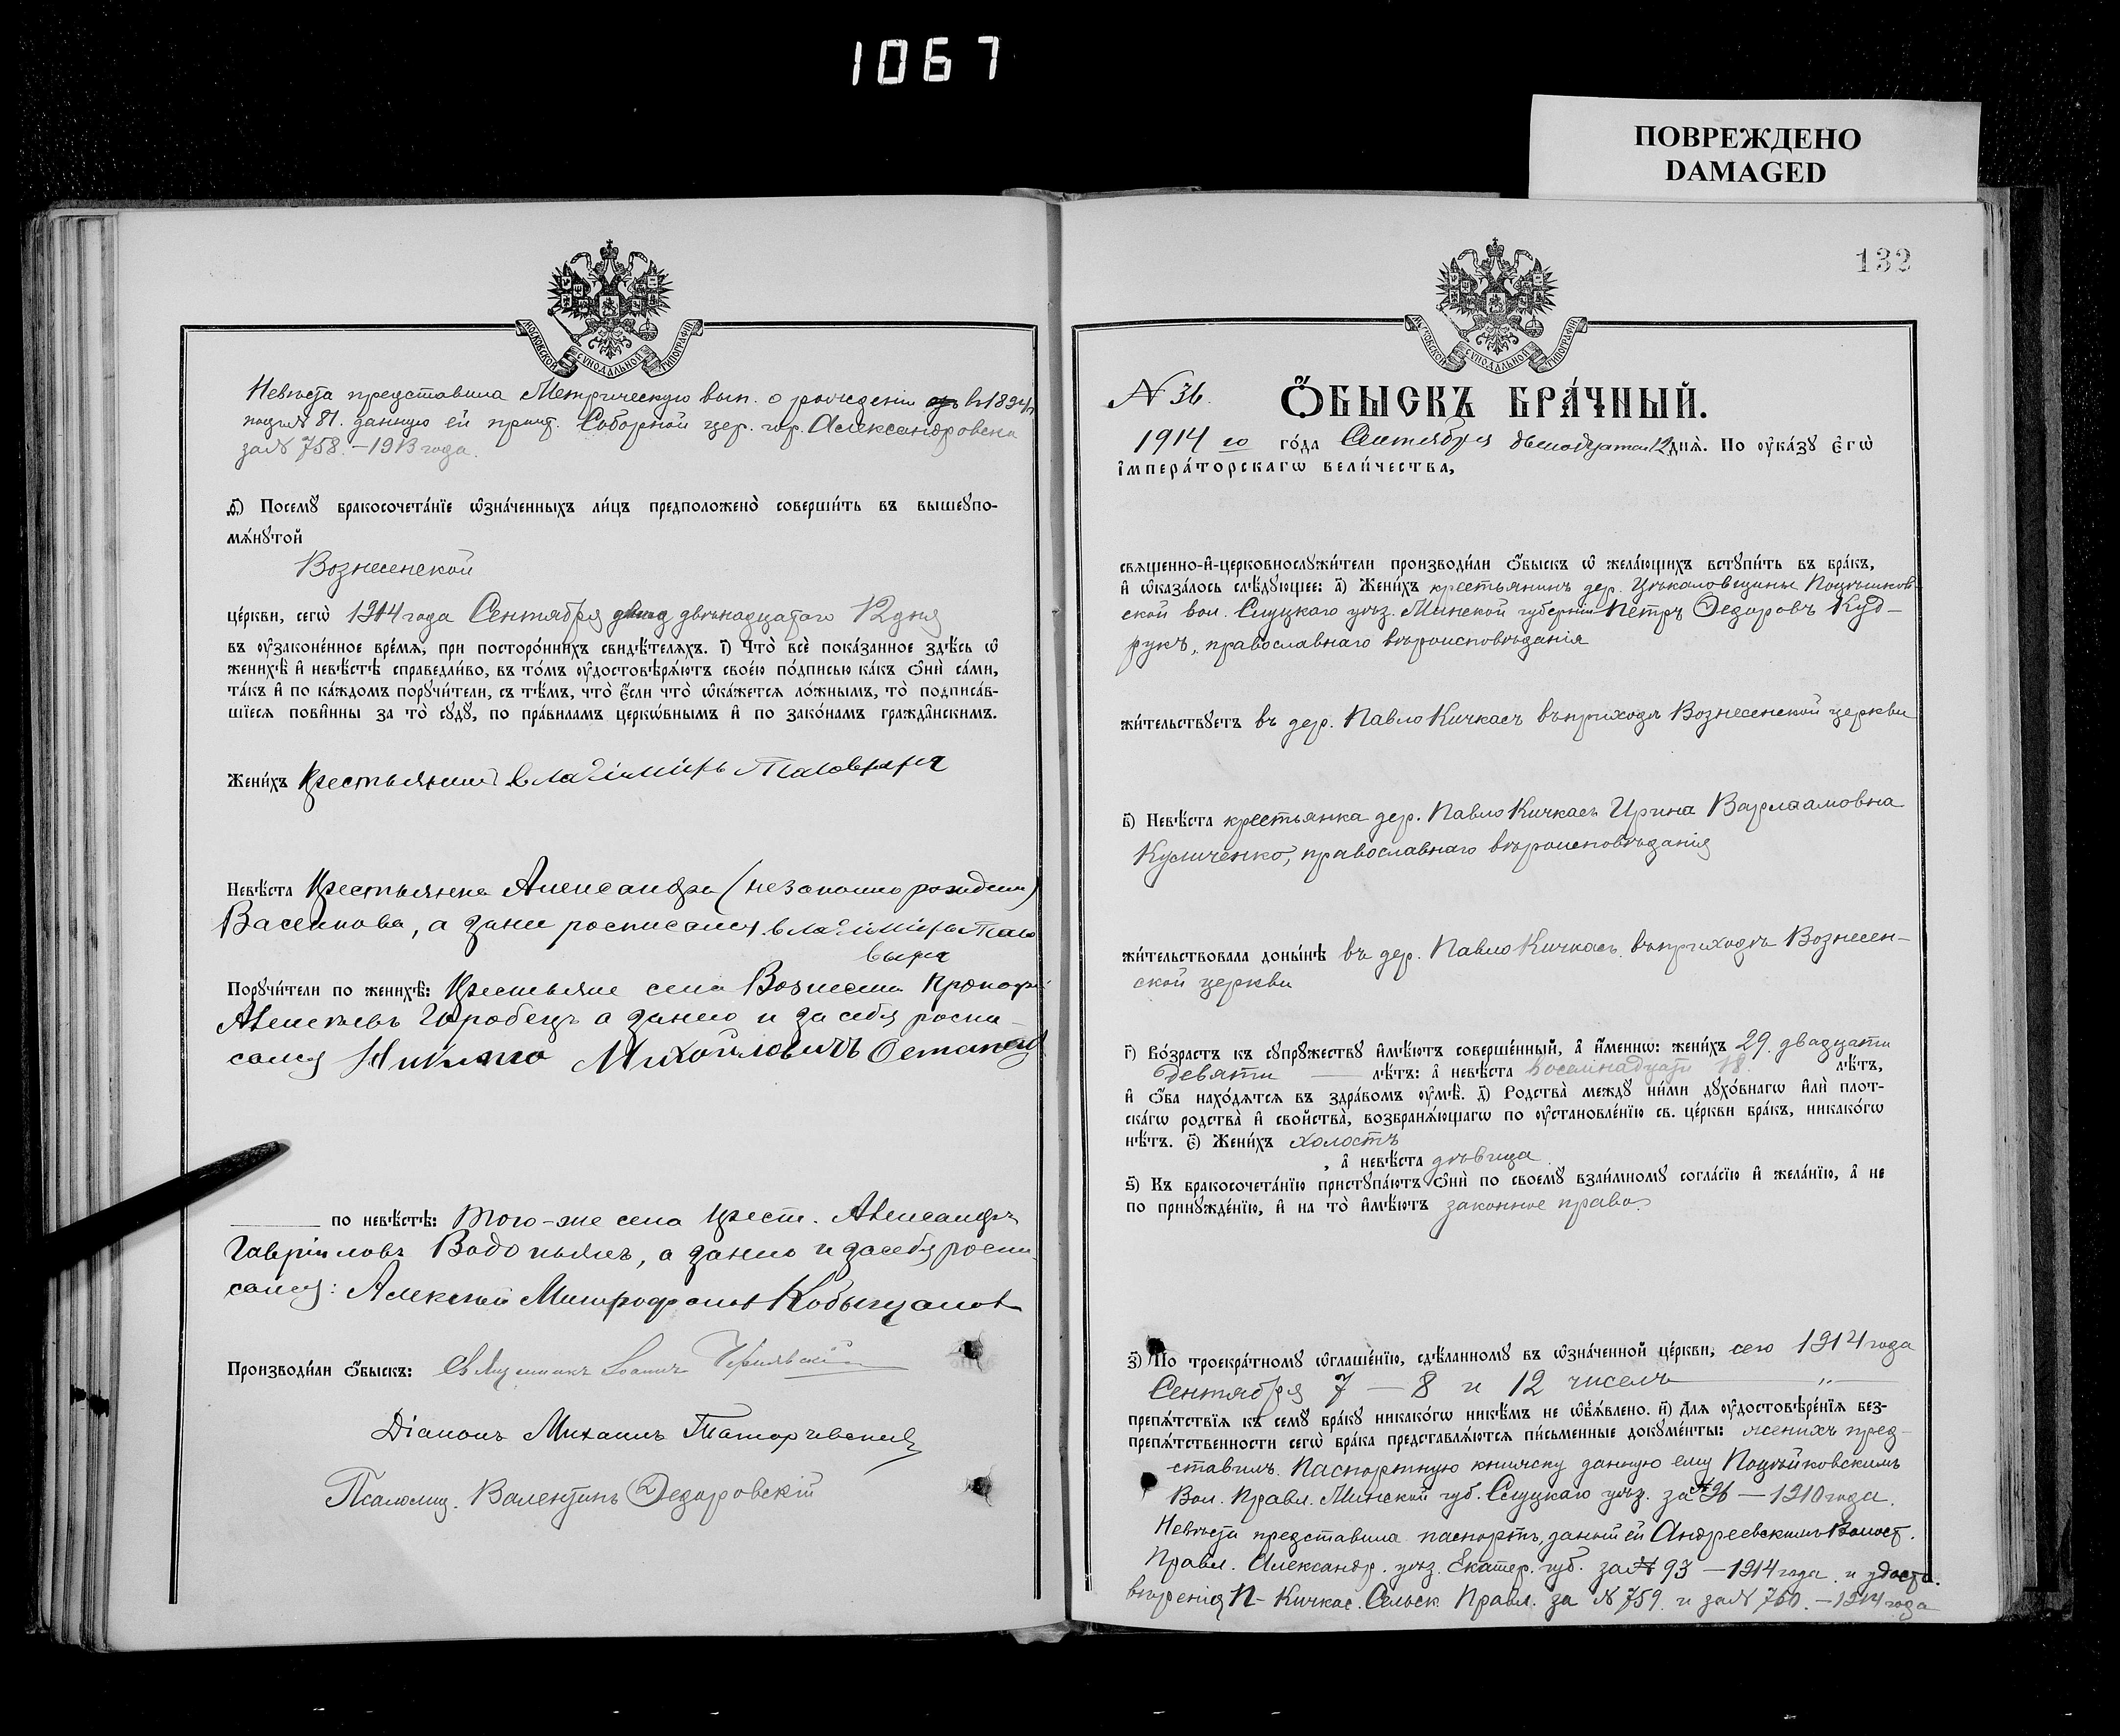 1067
ПОВРЕЖДЕНО
DAMAGED
МОСКОВСКОЙ СѴНОДАЛЬНОЙ ТИПОГРАФІИ
Невѣста представила Метрическую вып. о рожденіи въ 1894 г.
подъ № 81. данную ей прит. Соборной цер. гор. Александровска
за № 758. – 1913 года.
Ѳ҃) Посемꙋ бракосочета́нїе ѡзна́ченныхъ ли́цъ предположено̀ соверши́ть въ вышеꙋпо-
мѧ́нꙋтой
Вознесенской
це́ркви, сегѡ̀ 1914 года Сентября двѣнадцатаго 12 дня
въ ᲂу҆зако́ненное вре́мѧ, при посторо́ннихъ свидѣ́телѧхъ. І҃) Что̀ всѐ пока́занное здѣ́сь ѡ҆
женихѣ̀ и҆ невѣ́стѣ справедли́во, въ то́мъ ᲂу҆достовѣрѧ́ютъ свое́ю по́дписью ка́къ ѻ҆нѝ са́ми,
та́къ и҆ по ка́ждомъ порꙋчи́тели, съ тѣ́мъ, что̀ є҆́сли что̀ ѡ҆ка́жетсѧ ло́жнымъ, то̀ подписа́в-
шїесѧ пови́нны за то̀ сꙋдꙋ̀, по пра́виламъ церко́внымъ и҆ по зако́намъ гражда́нскимъ.
Жени́хъ Крестьянинъ Владиміръ
Невѣ́ста Крестьянка Александра (незаконно рожден.)
Васенкова, а за нее росписался Владиміръ
Порꙋчи́тели по женихѣ̀: Крестьяне села Вознесенки
Алексѣевъ Горобецъ а за него и за себя роспи-
сался Михайловичъ
по невѣ́стѣ: Того-же села крест. Александръ
Гавріиловъ Водопьянъ, а за него и за себя роспи-
сался: Алексѣй Митрофанов
Производи́ли ѻ҆́быскъ: Священникъ Іоаннъ Чернявскій
Діаконъ Михаилъ Татарчевскій
Псаломщ. Валентинъ Ѳедоровскій
132
МОСКОВСКОЙ СѴНОДАЛЬНОЙ ТИПОГРАФІИ
№ 36.
Ѻ҆́БЫСКЪ БРА́ЧНЫЙ.
1914 го го́да Сентября двѣнадцатаго 12 днѧ̀. По ᲂу҆ка́зꙋ Є҆гѡ̀
І҆мпера́торскагѡ вели́чества,
свѧще́нно-и҆-церковнослꙋжи́тели производи́ли ѻ҆́быскъ ѡ҆ жела́ющихъ встꙋпи́ть въ бра́къ,
и҆ ѡ҆каза́лось слѣ́дꙋющее: а҃) Жени́хъ крестьянинъ дер. Цѣкаловщины Поцѣйков-
ской вол. Слуцкаго уѣз. Минской губерніи Петръ Ѳедоровъ Куд-
рукъ, православнаго вѣроисповѣданія
жи́тельствꙋетъ въ дер. Павло Кичкасъ въ приходѣ Вознесенской церкви
в҃) Невѣ́ста крестьянка дер. Павло Кичкасъ Ирина Варлаамовна
Куличенко, православнаго вѣроисповѣданія
жи́тельствовала доны́нѣ въ дер. Павло Кичкасъ въ приходѣ Вознесен-
ской церкви
г҃) Во́зрастъ къ сꙋпрꙋжествꙋ и҆мѣ́ютъ соверше́нный, а҆ и҆́менно: жени́хъ 29. двадцати
девяти — лѣ́тъ: а҆ невѣ́ста восемнадцати 18. лѣ́тъ,
и҆ ѻ҆́ба нахо́дѧтсѧ въ здра́вомъ ᲂу҆мѣ̀. д҃) Родства̀ междꙋ ни́ми дꙋхо́внагѡ и҆лѝ плот-
ска́гѡ родства̀ и҆ сво́йства, возбранѧ́ющагѡ по ᲂу҆становле́нїю св. це́ркви бра́къ, никако́гѡ
нѣ́тъ. є҃) Жени́хъ холостъ
, а҆ невѣ́ста дѣвица
ѕ҃) Къ бракосочета́нїю пристꙋпа́ютъ ѻ҆нѝ по своемꙋ̀ взаи́мномꙋ согла́сїю и҆ жела́нїю, а҆ не
по принꙋжде́нїю, и҆ на то̀ и҆мѣ́ютъ законное право.
з҃) По троекра́тномꙋ ѡ҆глаше́нїю, сдѣ́ланномꙋ въ ѡ҆зна́ченной це́ркви, сего 1914 года
Сентября 7 – 8 и 12 чиселъ — „ —
препѧ́тствїѧ къ семꙋ̀ бра́кꙋ никако́гѡ никѣ́мъ не ѡ҆бъѧ́влено. и҃) Длѧ ᲂу҆достовѣре́нїѧ без-
препѧ́тственности сегѡ̀ бра́ка представлѧ́ютсѧ пи́сьменные докꙋме́нты: женихъ пред-
ставилъ. Паспортную книжку данную ему Поцѣйковскимъ
Вол. Правл. Минской губ. Слуцкаго уѣз. за № 26 – 1910 года.
Невѣста представила паспортъ, даный ей Андреевскимъ Волост.
Правл. Александр. уѣз. Екатер. губ. за № 93 – 1914 года и удосто-
вѣренія П- Кичкас. Сельск. Правл. за № 759. и за № 760. – 1914 года